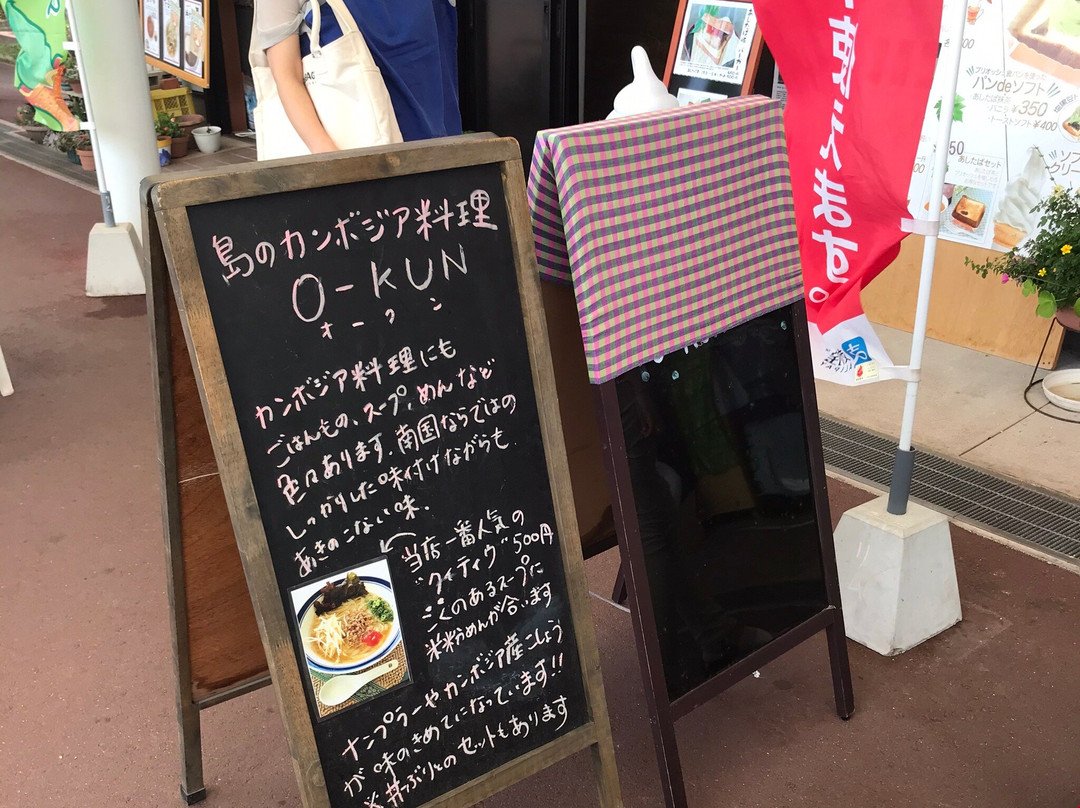 島のカンボジア料理
O-KUN
オークン
カンボジア料理にも
ごはんもの、スープ、めんなど
色々あります。南国ならではの
しっかりした味付けながらも
あきのこない味。
当店一番人気の
"クイティウ" 500円
こくのあるスープに
米粉めんが合います
ナンプラーやカンボジア産こしょう
が味のきめてになっています!!
※丼ぶりとのセットもあります
ます。
ブリオッシュ食パンを使った
パンdeソフト
バニラ ¥350
トーストソフト¥400
あしたばセット